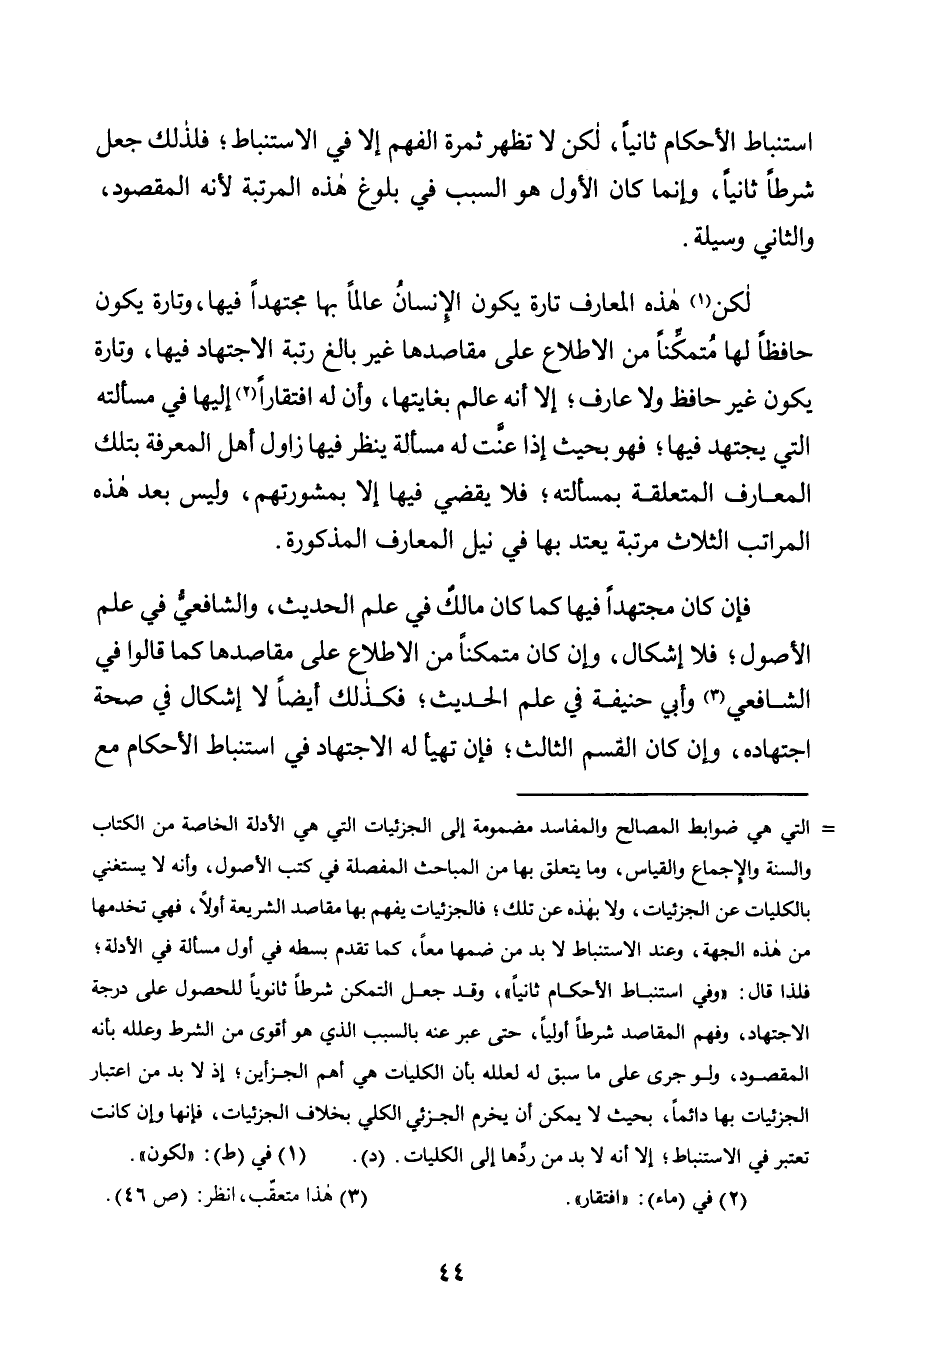 استنباط الأحكام ثانياً، لٰكن لا تظهر ثمرة الفهم إلا في الاستنباط؛ فلذٰلك جعل
شرطاً ثانياً، وإنما كان الأول هو السبب في بلوغ هٰذه المرتبة لأنه المقصود،
والثاني وسيلة.
لٰكن(١) هٰذه المعارف تارة يكون الإنسانُ عالماً بها مجتهداً فيها، وتارة يكون
حافظاً لها مُتمكِّناً من الاطلاع على مقاصدها غير بالغ رتبة الاجتهاد فيها، وتارة
يكون غير حافظ ولا عارف؛ إلا أنه عالم بغايتها، وأن له افتقاراً(٢) إليها في مسألته
التي يجتهد فيها؛ فهو بحيث إذا عنَّت له مسألة ينظر فيها زاول أهل المعرفة بتلك
المعارف المتعلقة بمسألته؛ فلا يقضي فيها إلا بمشورتهم، وليس بعد هٰذه
المراتب الثلاث مرتبة يعتد بها في نيل المعارف المذكورة.
فإن كان مجتهداً فيها كما كان مالكٌ في علم الحديث، والشافعيُّ في علم
الأصول؛ فلا إشكال، وإن كان متمكناً من الاطلاع على مقاصدها كما قالوا في
الشافعي(٣) وأبي حنيفة في علم الحديث؛ فكذٰلك أيضاً لا إشكال في صحة
اجتهاده، وإن كان القسم الثالث؛ فإن تهيأ له الاجتهاد في استنباط الأحكام مع
= التي هي ضوابط المصالح والمفاسد مضمومة إلى الجزئيات التي هي الأدلة الخاصة من الكتاب
والسنة والإجماع والقياس، وما يتعلق بها من المباحث المفصلة في كتب الأصول، وأنه لا يستغني
بالكليات عن الجزئيات، ولا بهٰذه عن تلك؛ فالجزئيات يفهم بها مقاصد الشريعة أولاً، فهي تخدمها
من هٰذه الجهة، وعند الاستنباط لا بد من ضمها معاً، كما تقدم بسطه في أول مسألة في الأدلة؛
فلذا قال: «وفي استنباط الأحكام ثانياً»، وقد جعل التمكن شرطاً ثانوياً للحصول على درجة
الاجتهاد، وفهم المقاصد شرطاً أولياً، حتى عبر عنه بالسبب الذي هو أقوى من الشرط وعلله بأنه
المقصود، ولو جرى على ما سبق له لعلله بأن الكليات هي أهم الجزأين؛ إذ لا بد من اعتبار
الجزئيات بها دائماً، بحيث لا يمكن أن يخرم الجزئي الكلي بخلاف الجزئيات، فإنها وإن كانت
تعتبر في الاستنباط؛ إلا أنه لا بد من ردِّها إلى الكليات. (د). (١) في (ط): «لكون».
(٢) في (ماء): «افتقار». (٣) هٰذا متعقَّب، انظر: (ص ٤٦).
٤٤